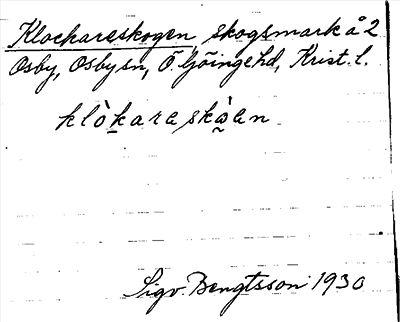 Klockareskogen, skogsmark å 2
Osby, Osby sn, Ö. Göinge hd, Krist. l.
klòkara skò̰en
Sigv. Bengtsson 1930